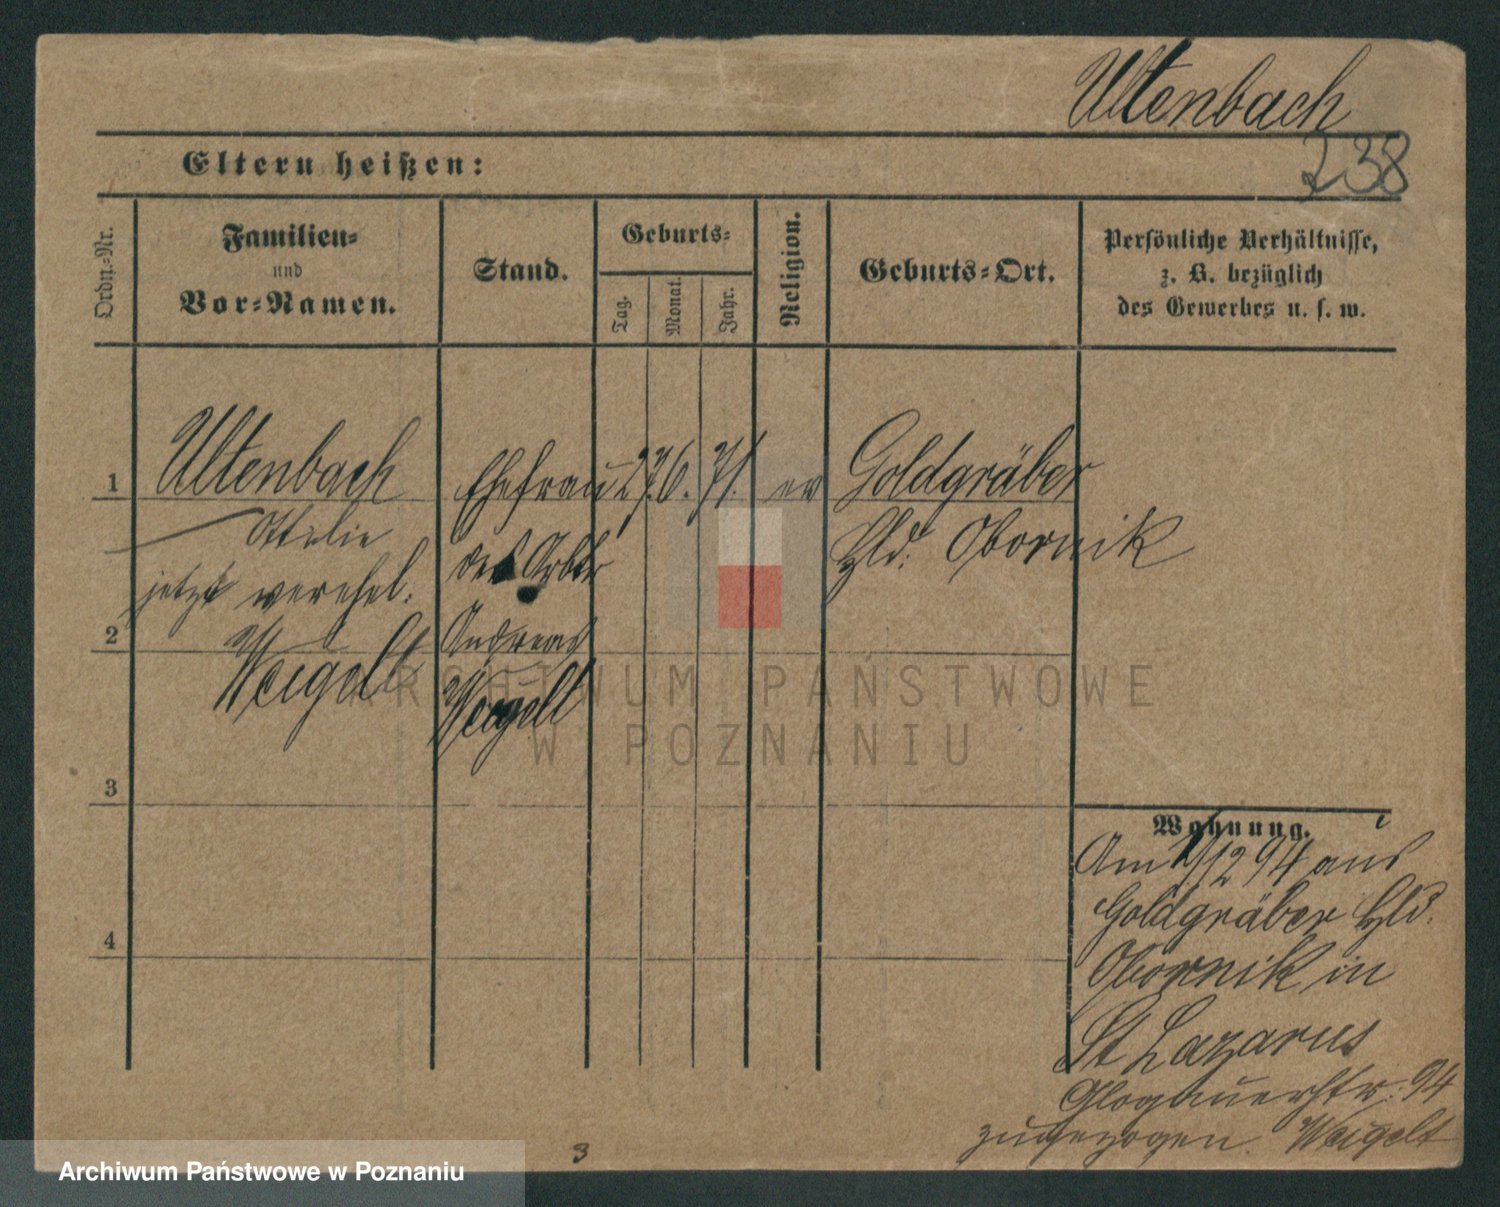 Ultenbach
238
Eltern heißen:
Ordn.-Nr.
Familien-
und
Vor-Namen.
Stand.
Geburts-
Tag.
Monat.
Jahr.
Religion.
Geburts-Ort.
Persönliche Verhältnisse,
z. B. bezüglich
des Gewerbes u. s. w.
1
Ultenbach
Ottilie
jetzt verehel.
Weigelt
Ehefrau
des Arbtr
Andreas
Weigelt
27. 6. 71.
ev
Goldgräber
Hld. Obornik
2
3
4
Wohnung.
Am 1/12 94 aus
Goldgräber Hld.
Obornik in
St Lazarus
Glogauerstr. 94
zugezogen. Weigelt
3
ARCHIWUM PAŃSTWOWE
W POZNANIU
Archiwum Państwowe w Poznaniu